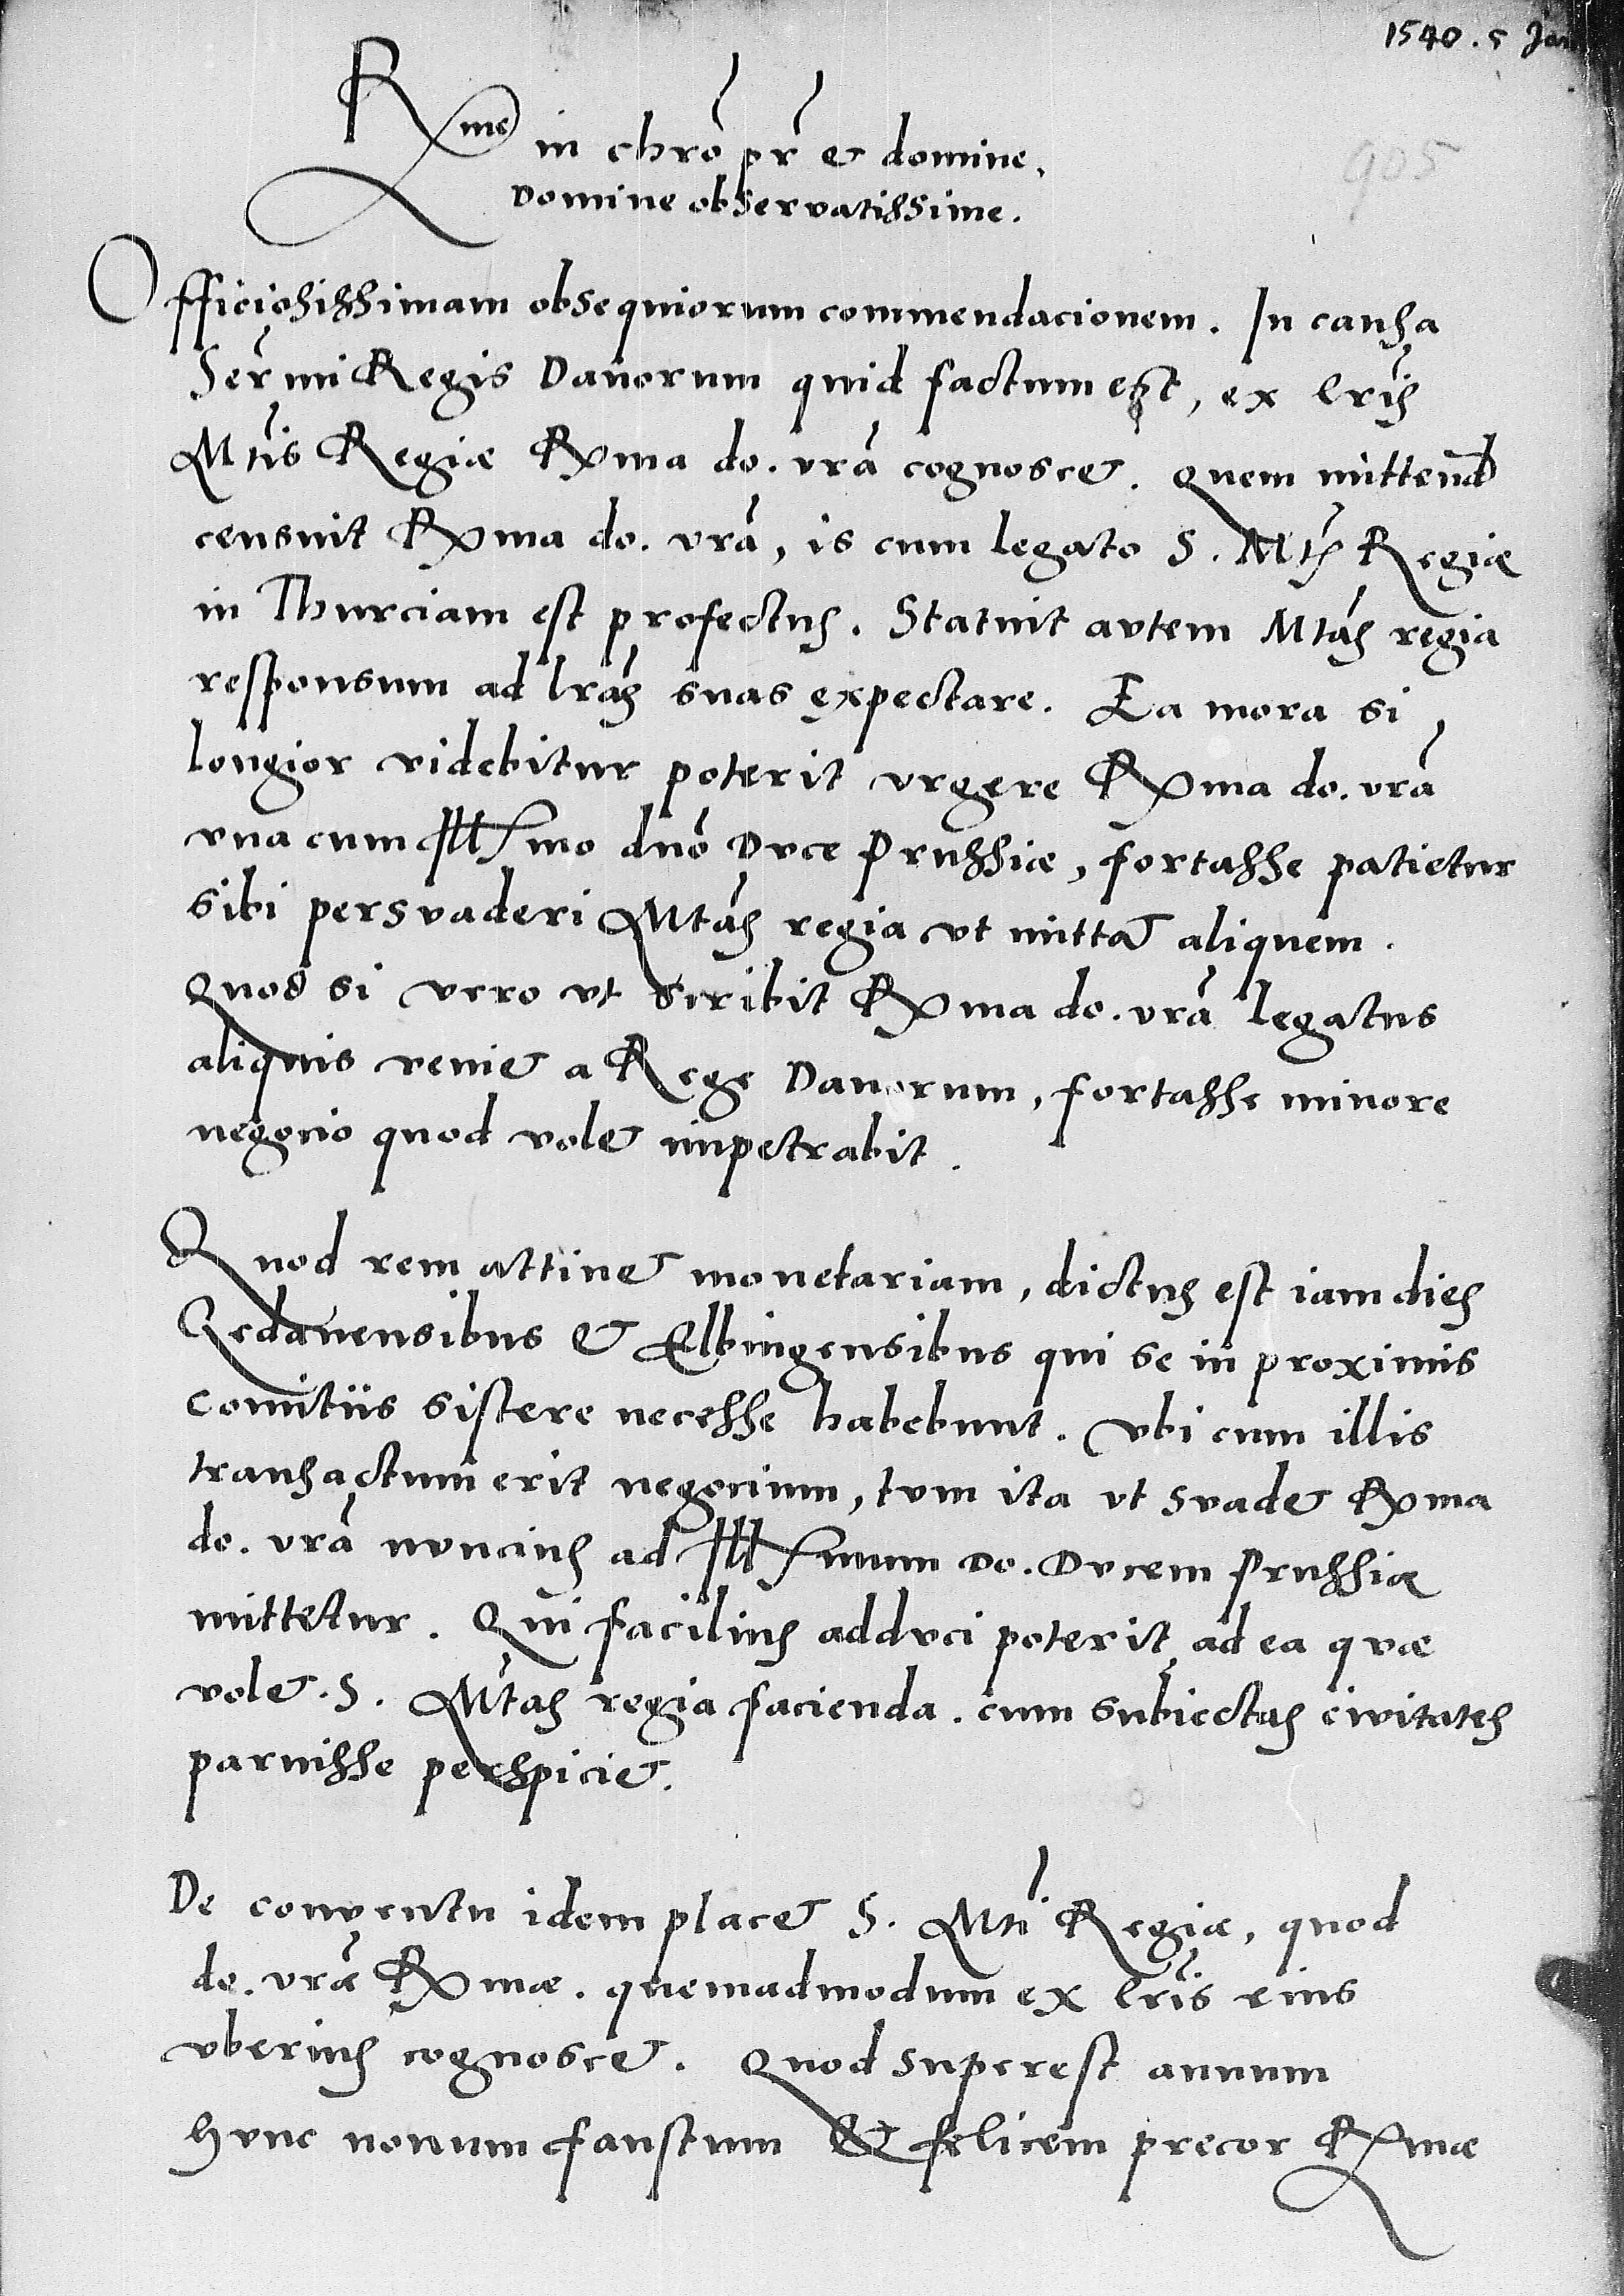 1540. 5 Jan
905
Rme in chro pr et domine,
Domine observatissime.
Officiosissimam obsequiorum commendacionem. In causa
Sermi Regis Danorum quid factum est, ex lris
Mtis Regiæ Rxma do. vra cognoscet. Quem mittend
censuit Rxma do. vra, is cum legato S. Mtis Regiæ
in Thurciam est profectus. Statuit autem Mtas regia
responsum ad lras suas expectare. Ea mora si
longior videbitur poterit vrgere Rxma do. vra
vna cum Illmo dno Duce Prussiæ, fortasse patietur
sibi persvaderi Mtas regia vt mittat aliquem.
Quod si vero vt scribit Rxma do. vra legatus
aliquis veniet a Rege Danorum, fortasse minore
negocio quod volet impetrabit.
Quod rem attinet monetariam, dictus est iam dies
Gedanensibus et Elbingensibus qui se in proximis
comitiis sistere necesse habebunt. Vbi cum illis
transactum erit negocium, tum ita vt svadet Rxma
do. vra nuncius ad Illmum do. Ducem Prussiæ
mittetur. Qui facilius adduci poterit ad ea quæ
volet S. Mtas regia facienda. cum subiectas civitates
paruisse perspiciet.
De conventu idem placet S. Mti Regiæ, quod
do. vræ Rxmæ. quemadmodum ex lris eius
vberius cognoscet. Quod superest annum
hunc nouum faustum et felicem precor Rxmæ